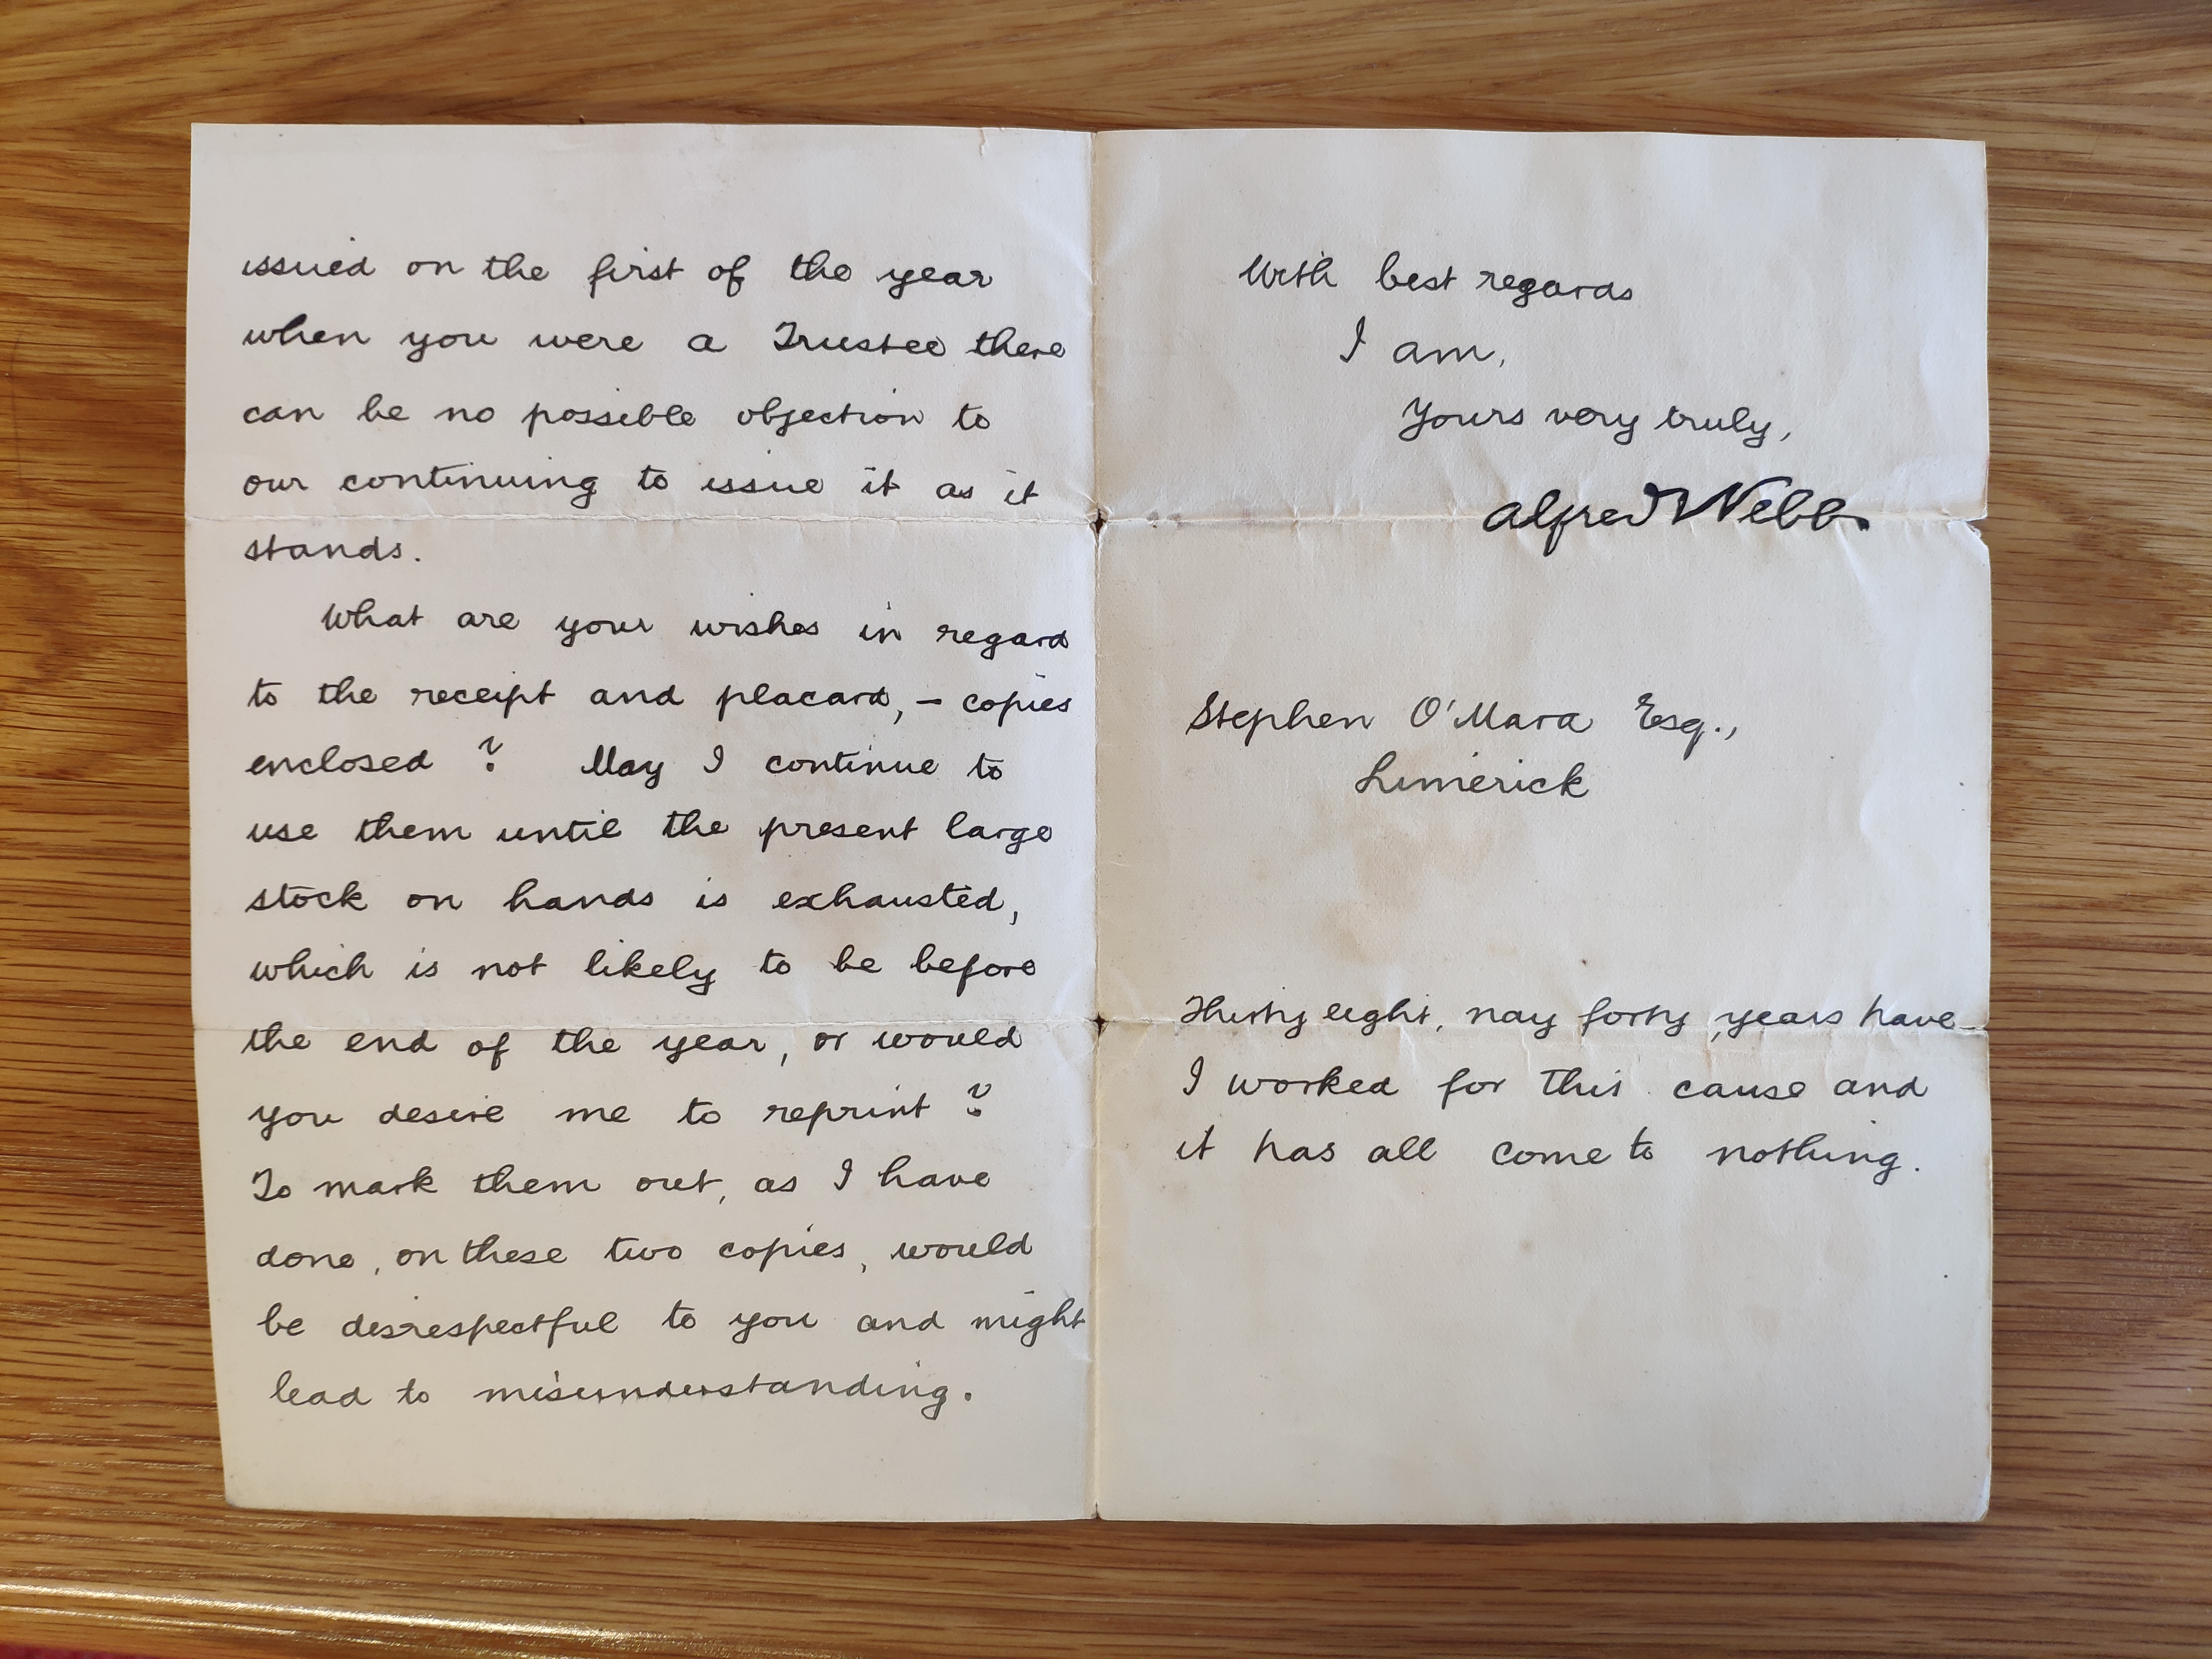 issued on the first of the year
when you were a Trustee there
can be no possible objection to
our continuing to issue it as it
stands.
What are your wishes in regard
to the receipt and placard, – copies
enclosed ? May I continue to
use them until the present large
stock on hands is exhausted,
which is not likely to be before
the end of the year, or would
you desire me to reprint ?
To mark them out, as I have
done, on these two copies, would
be disrespectful to you and might
lead to misunderstanding.
With best regards
I am,
Yours very truly,
Alfred Webb.
Stephen O'Mara Esq.,
Limerick
Thirty eight, nay forty, years have
I worked for this cause and
it has all come to nothing.